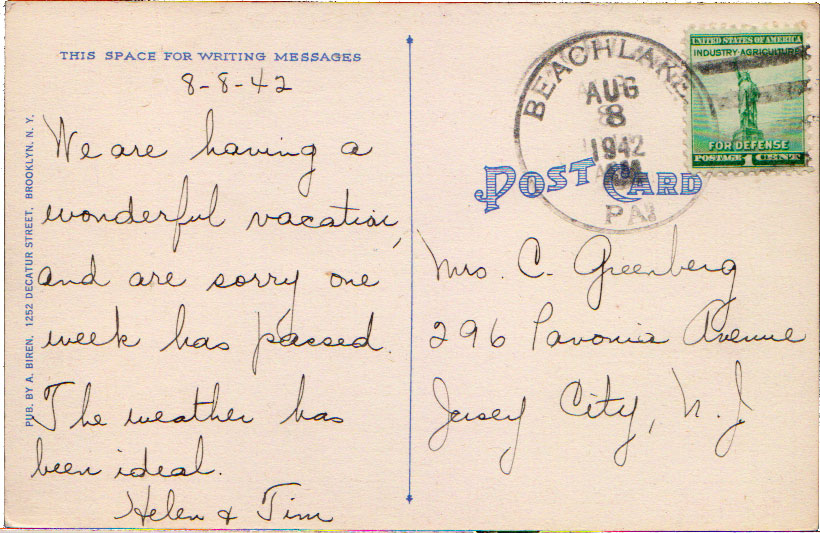 THIS SPACE FOR WRITING MESSAGES
8-8-42
We are having a
wonderful vacation,
and are sorry one
week has passed.
The weather has
been ideal.
Helen & Tim
PUB. BY A. BIREN, 1252 DECATUR STREET, BROOKLYN, N. Y.
BEACHLAKE
AUG
8
1942
PA.
UNITED STATES OF AMERICA
INDUSTRY·AGRICULTURE
FOR DEFENSE
POSTAGE 1 CENT
POST CARD
Mrs. C. Greenberg
296 Pavonia Avenue
Jersey City, N. J